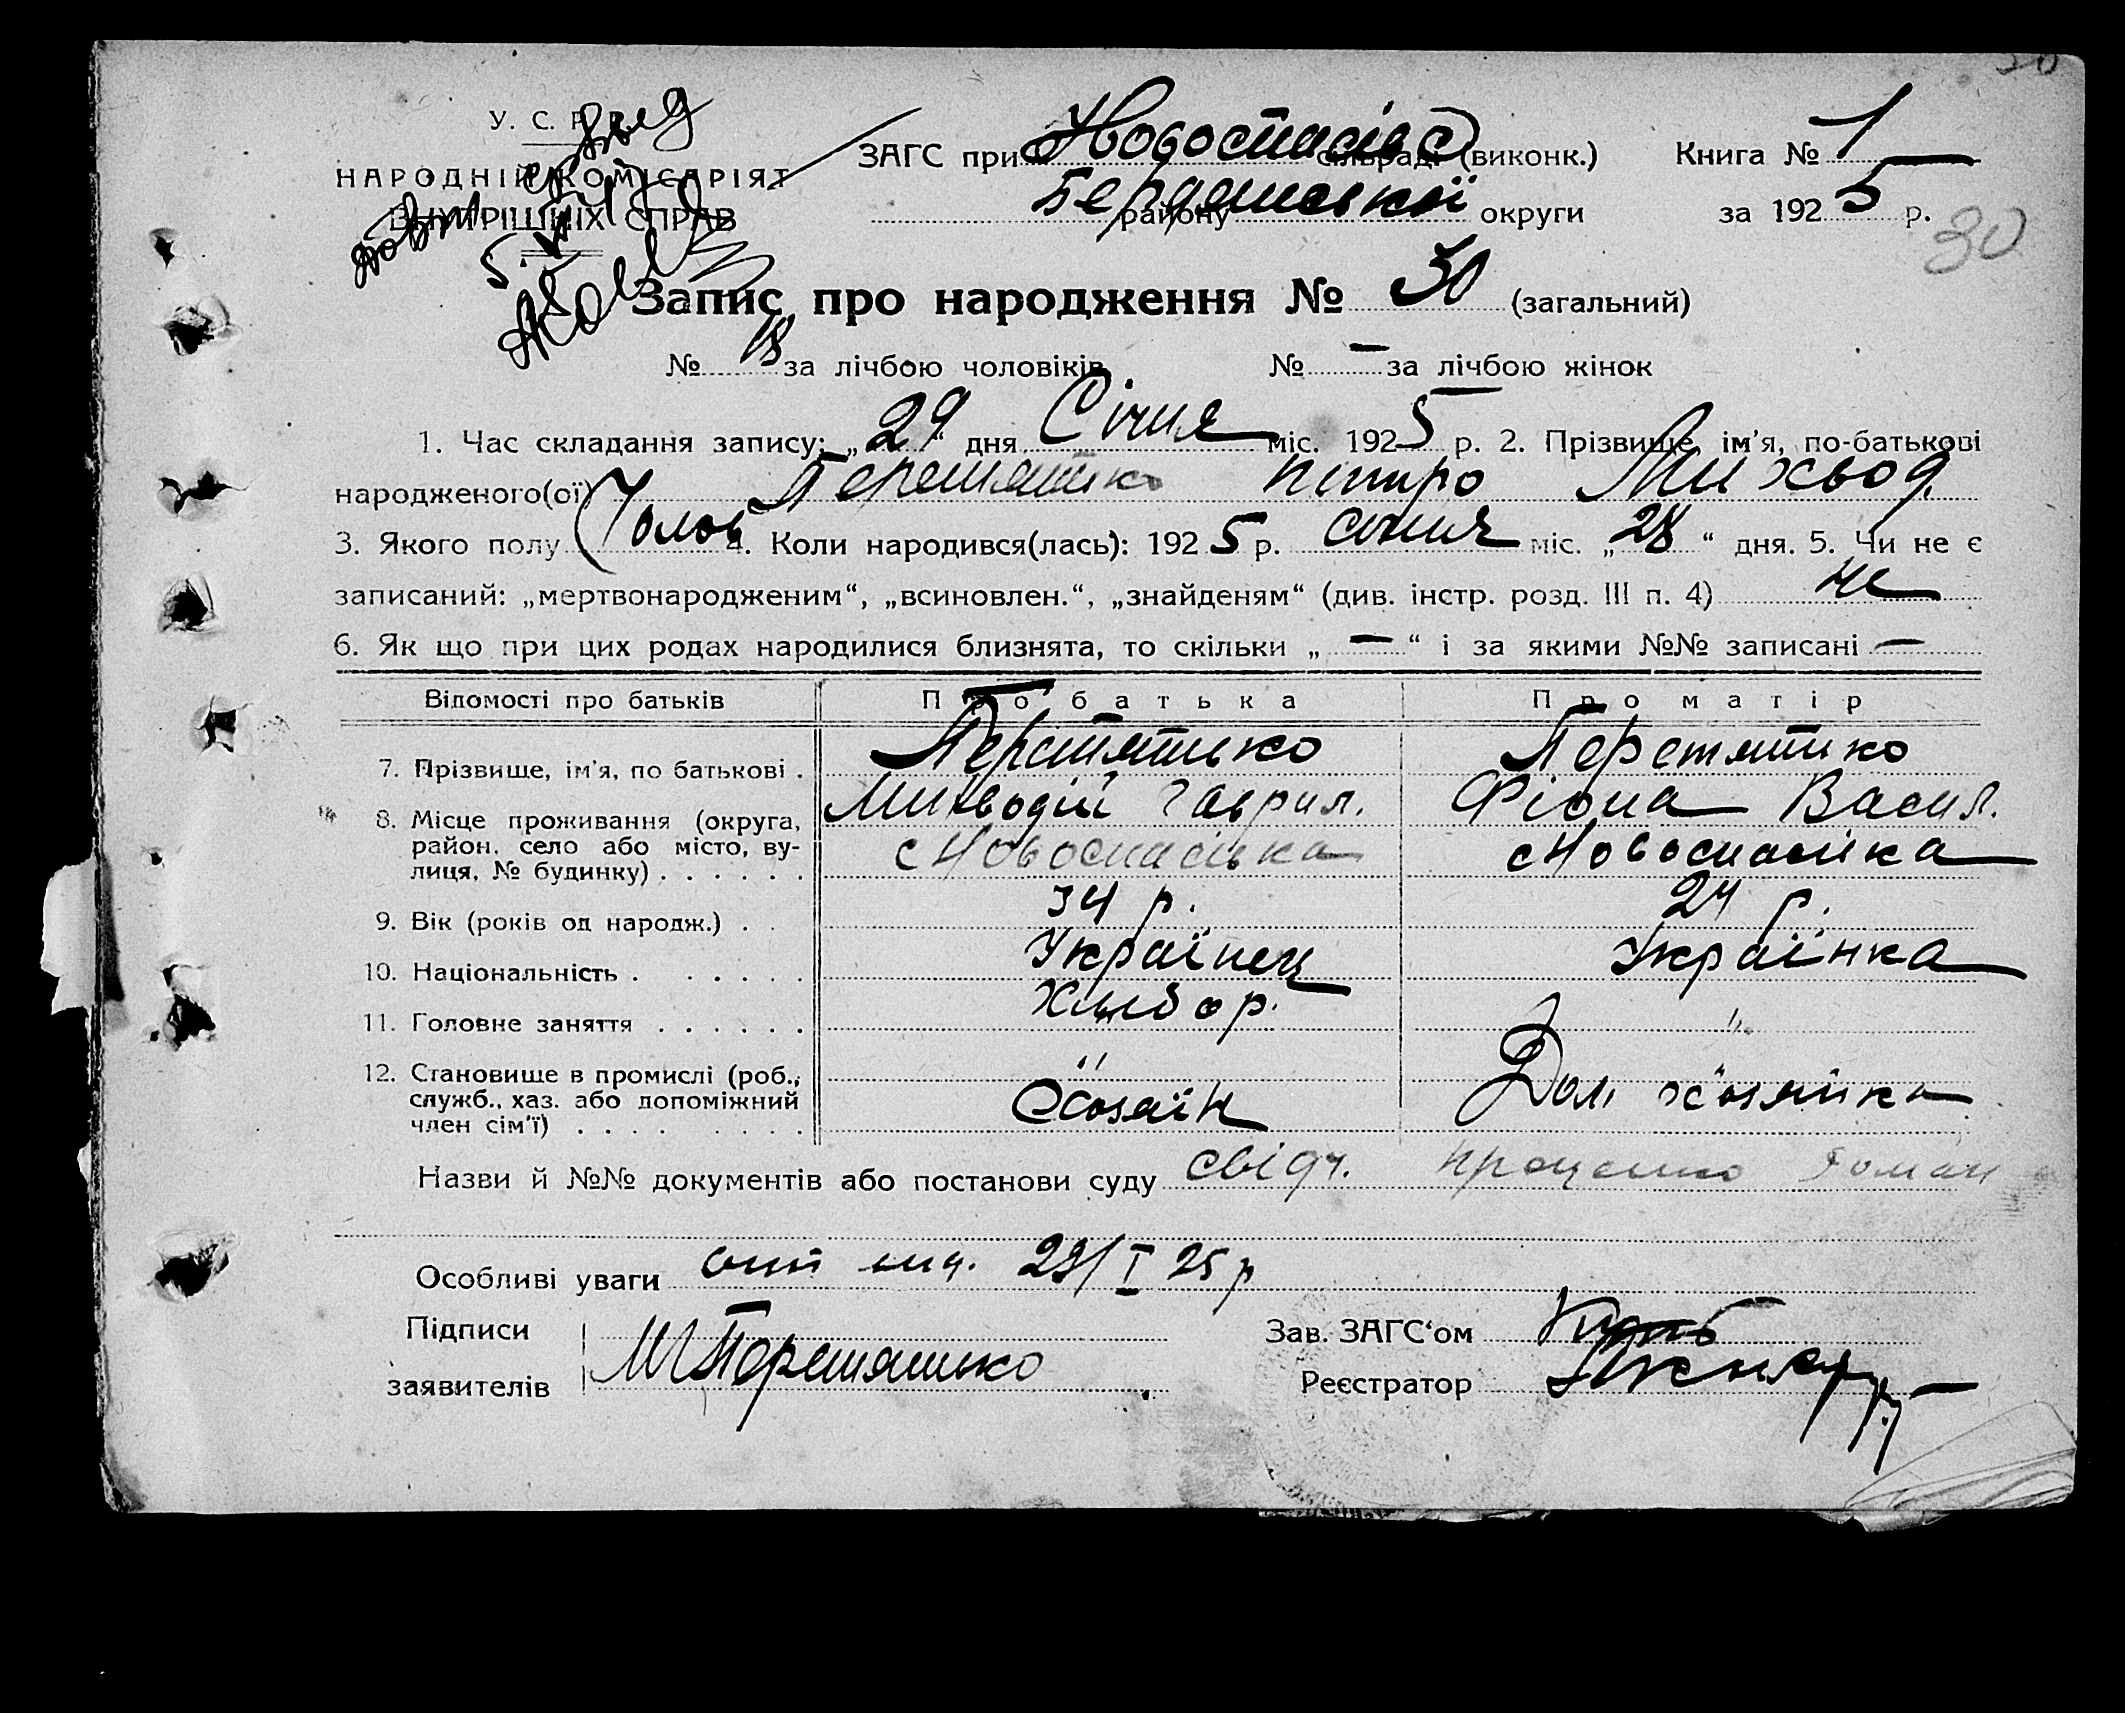 30
У. С. Р. Р.
НАРОДНІЙ КОМІСАРІЯТ
ВНУТРІШНІХ СПРАВ
ЗАГС при Новоспасівс сільраді (виконк.) Книга № 1
Бердянської району округи за 1925 р.
30
Запис про народження № 30 (загальний)
№ 18 за лічбою чоловіків № — за лічбою жінок
1. Час складання запису: „29“ дня Січня міс. 1925 р. 2. Прізвище, ім'я, по-батькові
народженого(ої) Перетятько Петро Михвод.
3. Якого полу Чолов 4. Коли народився(лась): 1925 р. січня міс. „28“ дня. 5. Чи не є
записаний: „мертвонародженим“, „всиновлен.“, „знайденям“ (див. інстр. розд. III п. 4) не
6. Як що при цих родах народилися близнята, то скільки „—“ і за якими №№ записані —
Відомості про батьків Про батька Про матір
7. Прізвище, ім'я, по батькові . Перетятько Перетятько
Михводій Гаврил. Фіона Васил.
8. Місце проживання (округа, район, село або місто, вулиця, № будинку) . . . . . . с Новоспасівка с Новоспасівка
9. Вік (років од народж.) . . 34 р. 24 р.
10. Національність . . . . . . Українец Українка
11. Головне заняття . . . . . . Хлібор. "
12. Становище в промислі (роб., служб., хаз. або допоміжний член сім'ї) . . . . . . . . " Хозяїн Дом хозяйка
Назви й №№ документів або постанови суду свідч. Проценко Роман
Особливі уваги 29/I 25 р
Підписи
заявителів М Перетятько
Зав. ЗАГС'ом
Реєстратор